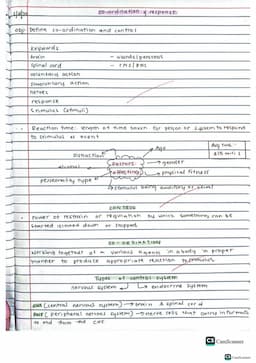 co-ordination & response
obj: Define co-ordination and control
keywords
brain - glands/
spinal cord - CNS/PNS
voluntary action
involuntary action
nerves
response
stimulus (stimuli)
Reaction time: length of time taken for person or system to respond
to stimulus or event
Distraction
Age
Avg time -
alcohol
factors
affecting
gender
physical fitness
personality type
stimulus being auditory or visual
CONTROL
Power of restrain or regulation by which something can be
started slowed down or stopped
CO-ORDINATION
Working together of various organs in a body in proper
manner to produce appropriate reaction to stimulus
Types of control system
nervous system
endocrine system
CNS (central nervous system) → brain & spinal cord
PNS (peripheral nervous system) → nerve cells that carry informatn
to and from the CNS
CS CamScanner
CS CamScanner